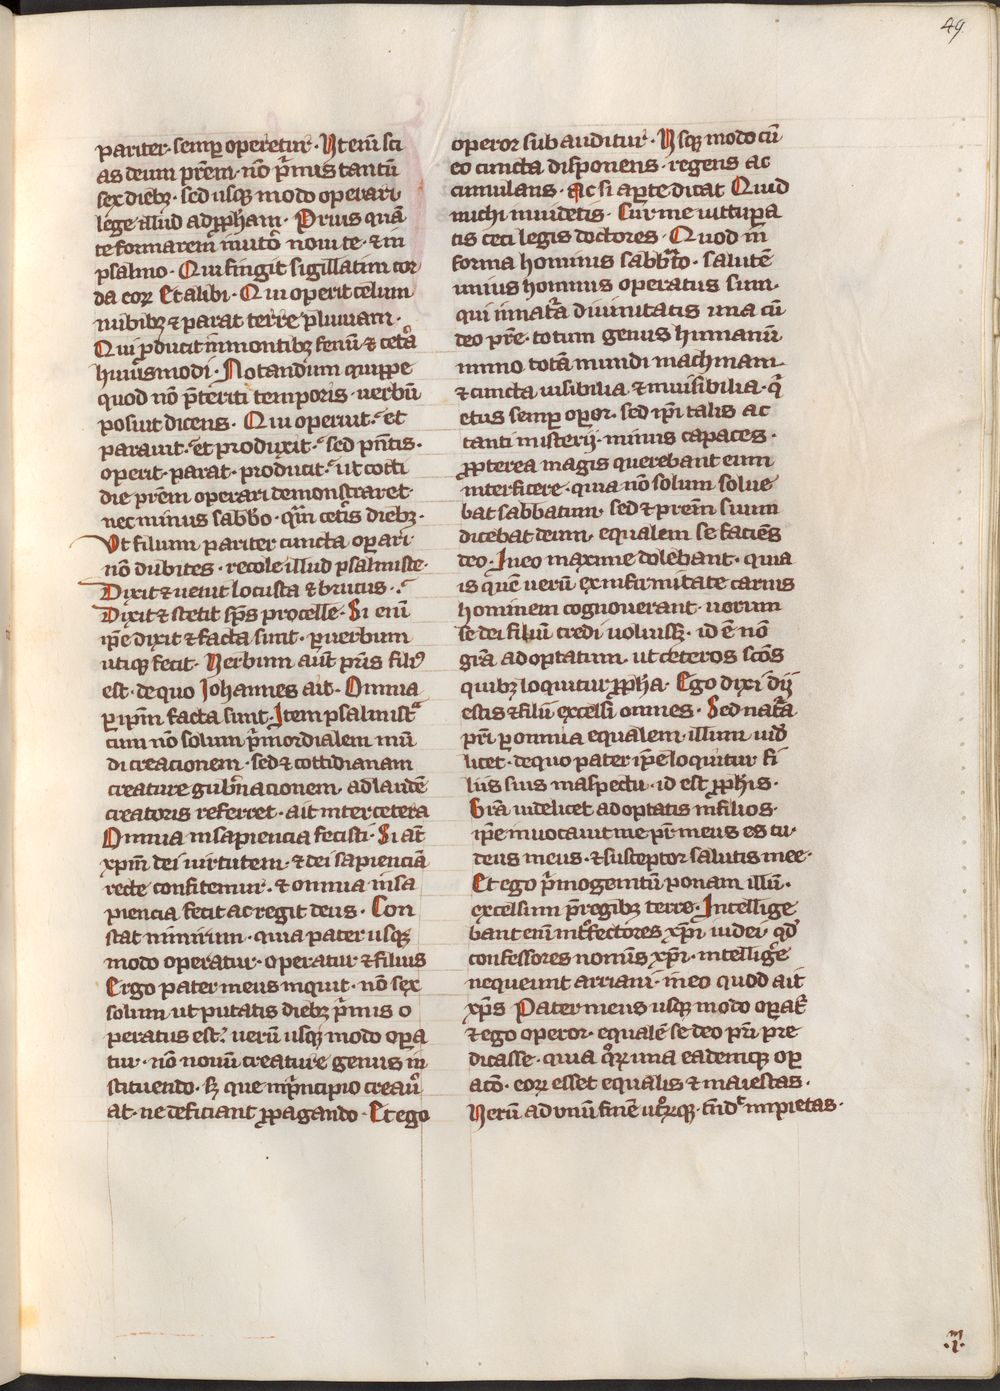 49.
pariter · semꝑ operetur · Vt enī sci
as deum prēm · nō p̄mis tantū
sex diebꝫ · sed usqꝫ modo operari
lege illud ad ꝓpham · Prius quā
te formarem īn utō noui te · ⁊ in
psalmo · Qui fingit sigillatim cor
da eoꝝ Et alibi · Qui operit celum
nubibꝫ ⁊ parat terre pluuiam ·
Qui ꝓducit in montibꝫ fenū ⁊ cetᷓa
huiusmodi · Notandum quippe
quod nō p̄teriti temporis · uerbū
posuit dicens · Qui operuit · et
parauit · et produxit · sed pn̄tis ·
operit · parat · producit · ut cotti
die prēm operari demonstraret
nec minus sabbo · qᷓm cetīs diebꝫ ·
Vt filium pariter cuncta oꝑari
nō dubites · recole illud psalmiste ·
Dixit ⁊ uenit locusta ⁊ brucus ·
Dixit ⁊ stetit sp̄s procelle · Si enī
ip̄e dixit ⁊ facta sunt · ꝑ uerbum
utiqꝫ fecit · Verbum aūt pr̄is filiꝰ
est · de quo Iohannes ait · Omnia
ꝑ ip̄m facta sunt · Item psalmistᷓ
cum nō solum p̄mordialem mū
di creacionem · sed ⁊ cottidianam
creature gub̄nacionem · ad laudē
creatoris referret · ait inter cetera
Omnia in sapiencia fecisti · Si aūt
xp̄m dei uirtutem · ⁊ dei sapienciā
recte confitemur · ⁊ omnia in sa
piencia fecit ac regit deus · Con
stat nimirum · quia pater usqꝫ
modo operatur · operatur ⁊ filius
Ergo pater meus inquit · nō sex
solum ut putatis diebꝫ p̄mis o
peratus est · uerū usqꝫ modo oꝑa
tur · nō nouū creature genus in
stituendo · sꝫ que in p̄ncipio creau̾
at · ne deficiant ꝓpagando · Et ego
operor sub auditur · Vsqꝫ modo cū
eo cuncta disponens · regens ac
cumulans · Ac si aꝑte dicat Quid
michi inuidetis · Cur me uittuꝑa
tis ceci legis doctores · Quod in
forma hominis sabbᷓto · salutē
unius hominis operatus sum ·
qui in natᷓa diuinitatis una cū
deo pr̄e · totum genus humanū
immo totā mundi machinam
⁊ cuncta uisibilia ⁊ inuisibilia · q̄
etus semꝑ oꝑor · sed ip̄i talis ac
tanti misterij · minus capaces ·
ꝓpterea magis querebant eum
interficere · quia nō solum solue
bat sabbatum · sed ⁊ prēm suum
dicebat deum · equalem se faciēs
deo · In eo maxime dolebant · quia
is quē uerū ex infirmitate carnis
hominem cognouerant · uerum
se dei filiū credi uoluissꝫ · id ē nō
gr̄a adoptatum · ut ceteros scōs
quibꝫ loquitur ꝓpha · Ego dixi dij
estis ⁊ filii excelsi omnes · Sed natᷓa
pr̄i ꝑ omnia equalem · illum uid̾
licet · de quo pater ip̄e loquitur fi
liis suis in aspectu · id est ꝓphis ·
Gr̄a uidelicet adoptatis in filios ·
ip̄e inuocauit me pr̄ meus es tu ·
deus meus · ⁊ susceptor salutis mee ·
Et ego p̄mogenitū ponam illū ·
excelsum p̄ regibꝫ terre · Intellige
bant enī int̾fectores xp̄i iudei qd̾
confessores nominīs xp̄i · intellig̾e
nequeunt arriani · in eo quod ait
xp̄s Pater meus usqꝫ modo oꝑat̾
⁊ ego operor · equalē se deo pr̄i pre
dicasse · quia quoꝝ una eademqꝫ oꝑ
acō · eoꝝ esset equalis ⁊ maiestas ·
Verū ad unū finē utroꝝqꝫ · tēdᶜ impietas ·
m
· 1 ·